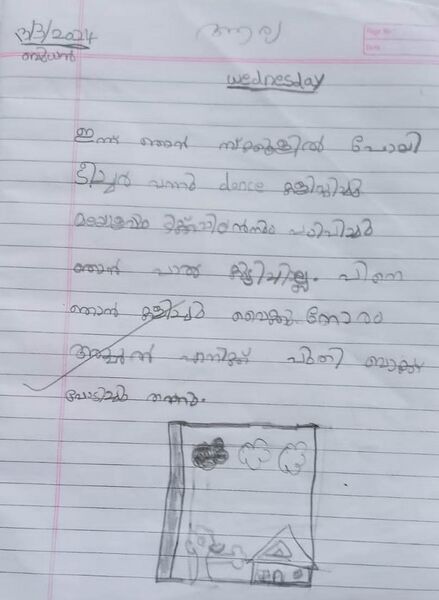 അല
13/3/2024
ബുധൻ
Page No
Date
wednesday
ഇന്ന് ഞാൻ സ്കൂളിൽ പോയി
ടീച്ചർ വന്നു dance കളിപ്പിച്ചു
മലയാളം പഠിപ്പിച്ചു
ഞാൻ പാൽ കുടിച്ചില്ല. പിന്നെ
ഞാൻ കളിച്ചു വൈകുന്നേരം
അച്ഛൻ എനിക്ക്
തന്നു.